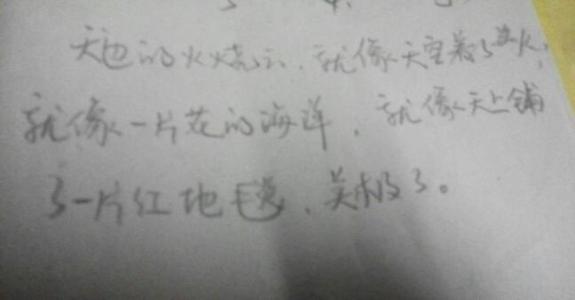 天边的火烧云，就像天空着了火，
就像一片花的海洋，就像天上铺
了一片红地毯，美极了。